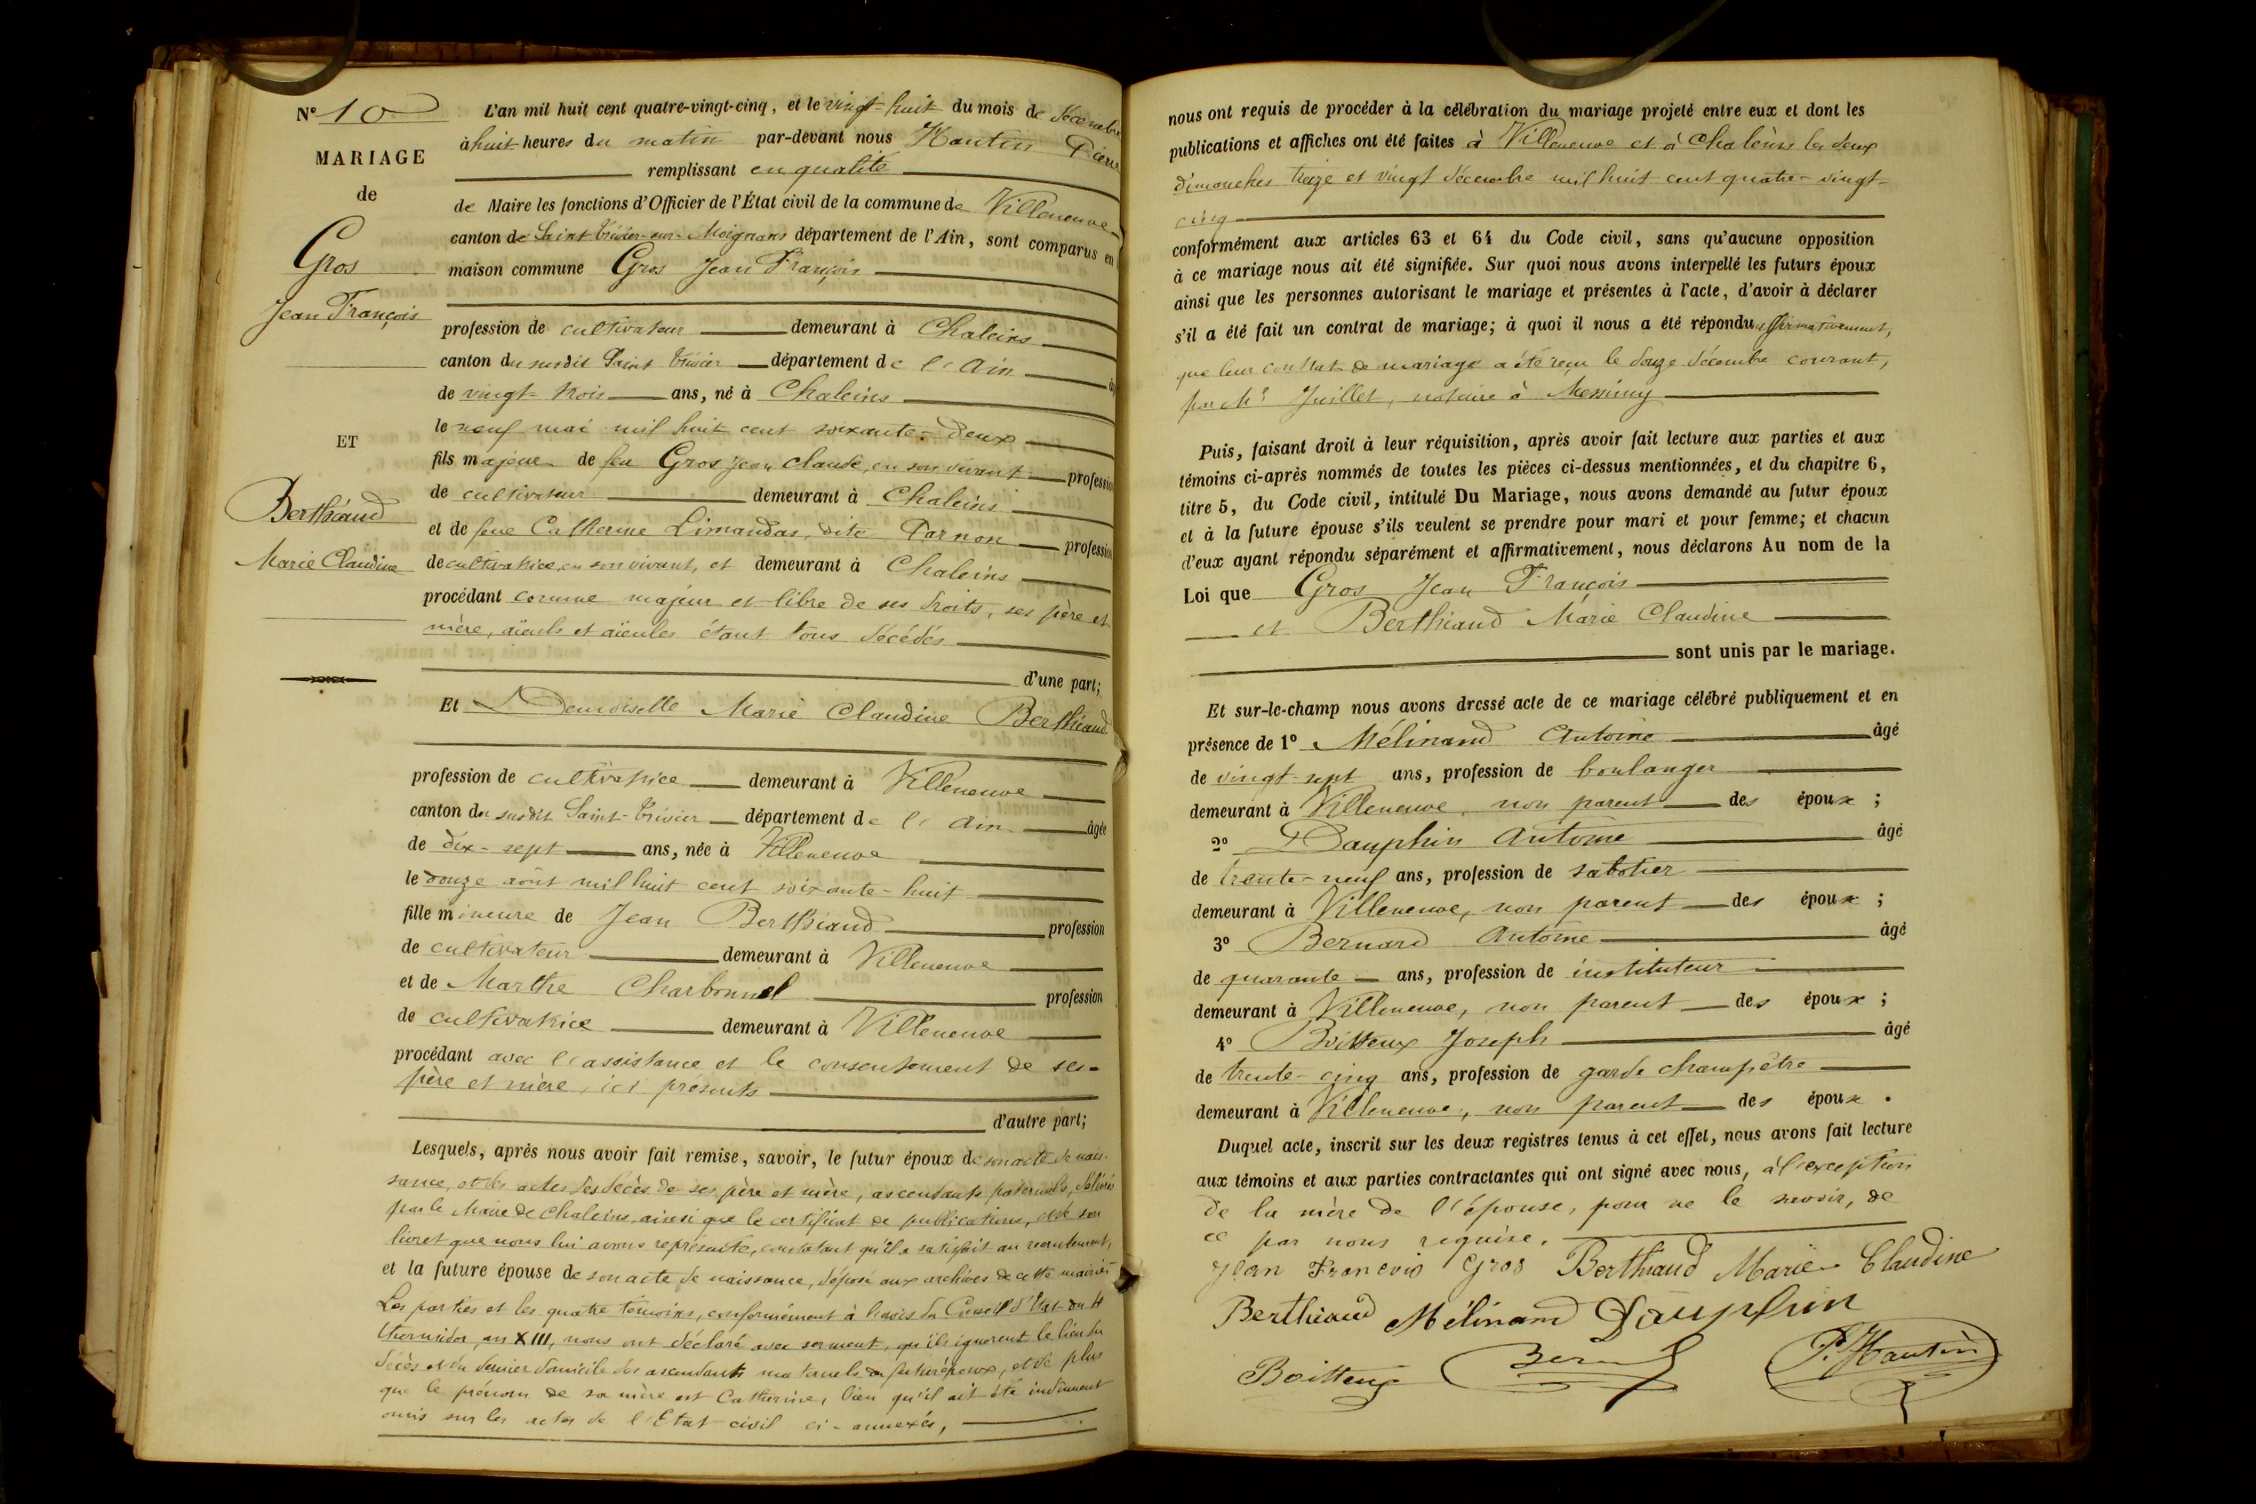 N° 10
MARIAGE
de
Gros
Jean François
ET
Berthiaud
Marie Claudine
L'an mil huit cent quatre-vingt-cinq, et le vingt-huit du mois de décembre
à huit heures du matin par-devant nous Hautin Pierre
remplissant en qualité
de Maire les fonctions d'Officier de l'État civil de la commune de Villeneuve
canton de Saint Trivier-sur-Moignans département de l'Ain, sont comparus en
maison commune Gros Jean François
profession de cultivateur demeurant à Chaleins
canton du susdit Saint Trivier département de l'Ain
de vingt-trois ans, né à Chaleins
le neuf mai mil huit cent soixante-deux
fils majeur de feu Gros Jean Claude, en son vivant profession
de cultivateur demeurant à Chaleins
et de feue Catherine Limandas, dite Darnon profession
de cultivatrice, en son vivant, et demeurant à Chaleins
procédant comme majeur et libre de ses droits, ses père et
mère, aïeuls et aïeules étant tous décédés
d'une part;
Et Demoiselle Marie Claudine Berthiaud
profession de cultivatrice demeurant à Villeneuve
canton du susdit Saint-Trivier département de l'Ain âgée
de dix-sept ans, née à Villeneuve
le douze août mil huit cent soixante-huit
fille mineure de Jean Berthiaud profession
de cultivateur demeurant à Villeneuve
et de Marthe Charbonnel profession
de cultivatrice demeurant à Villeneuve
procédant avec l'assistance et le consentement de ses
père et mère, ici présents
d'autre part;
Lesquels, après nous avoir fait remise, savoir, le futur époux de son acte de nais-
sance, et des actes des décès de ses père et mère, ascendants paternels, délivrés
par le Maire de Chaleins, ainsi que le certificat de publications, et de son
livret que nous lui avons représenté, constatant qu'il a satisfait au recrutement,
et la future épouse de son acte de naissance, déposé aux archives de cette mairie.
Les parties et les quatre témoins, conformément à l'avis du Conseil d'Etat du 4
thermidor, an XIII, nous ont déclaré avec serment, qu'ils ignorent le lieu du
décès et du dernier domicile des ascendants maternels du futur époux, et de plus
que le prénom de sa mère est Catherine, bien qu'il ait été indûment
omis sur les actes de l'Etat civil ci-annexés,
nous ont requis de procéder à la célébration du mariage projeté entre eux et dont les
publications et affiches ont été faites à Villeneuve et à Chaleins les deux
dimanches treize et vingt décembre mil huit cent quatre-vingt-
cinq
conformément aux articles 63 et 64 du Code civil, sans qu'aucune opposition
à ce mariage nous ait été signifiée. Sur quoi nous avons interpellé les futurs époux
ainsi que les personnes autorisant le mariage et présentes à l'acte, d'avoir à déclarer
s'il a été fait un contrat de mariage; à quoi il nous a été répondu affirmativement,
que leur contrat de mariage a été reçu le douze décembre courant,
par Me Juillet, notaire à Messimy
Puis, faisant droit à leur réquisition, après avoir fait lecture aux parties et aux
témoins ci-après nommés de toutes les pièces ci-dessus mentionnées, et du chapitre 6,
titre 5, du Code civil, intitulé Du Mariage, nous avons demandé au futur époux
et à la future épouse s'ils veulent se prendre pour mari et pour femme; et chacun
d'eux ayant répondu séparément et affirmativement, nous déclarons Au nom de la
Loi que Gros Jean François
et Berthiaud Marie Claudine
sont unis par le mariage.
Et sur-le-champ nous avons dressé acte de ce mariage célébré publiquement et en
présence de 1° Mélinand Antoine âgé
de vingt-sept ans, profession de boulanger
demeurant à Villeneuve, non parent des époux ;
2° Dauphin Antoine âgé
de trente-neuf ans, profession de sabotier
demeurant à Villeneuve, non parent des époux ;
3° Bernard Antoine âgé
de quarante ans, profession de instituteur
demeurant à Villeneuve, non parent des époux ;
4° Boitteux Joseph âgé
de trente-cinq ans, profession de garde champêtre
demeurant à Villeneuve, non parent des époux.
Duquel acte, inscrit sur les deux registres tenus à cet effet, nous avons fait lecture
aux témoins et aux parties contractantes qui ont signé avec nous, à l'exception
de la mère de l'épouse, pour ne le savoir, de
ce par nous requise.
Jean Francois Gros Berthiaud Marie Claudine
Berthiaud Mélinand Dauphin
Boitteux P. Hautin